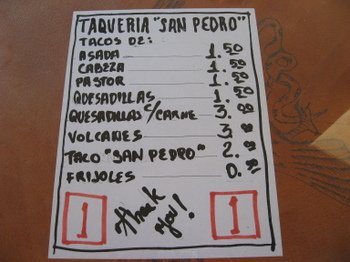 TAQUERIA "SAN PEDRO"
TACOS DE:
ASADA 1.50
CABEZA 1.50
PASTOR 1.50
QUESADILLAS 1.50
QUESADILLAS C/CARNE 3.
VOLCANES 3.
TACO "SAN PEDRO" 2.
FRIJOLES 0.
1 thank you! 1